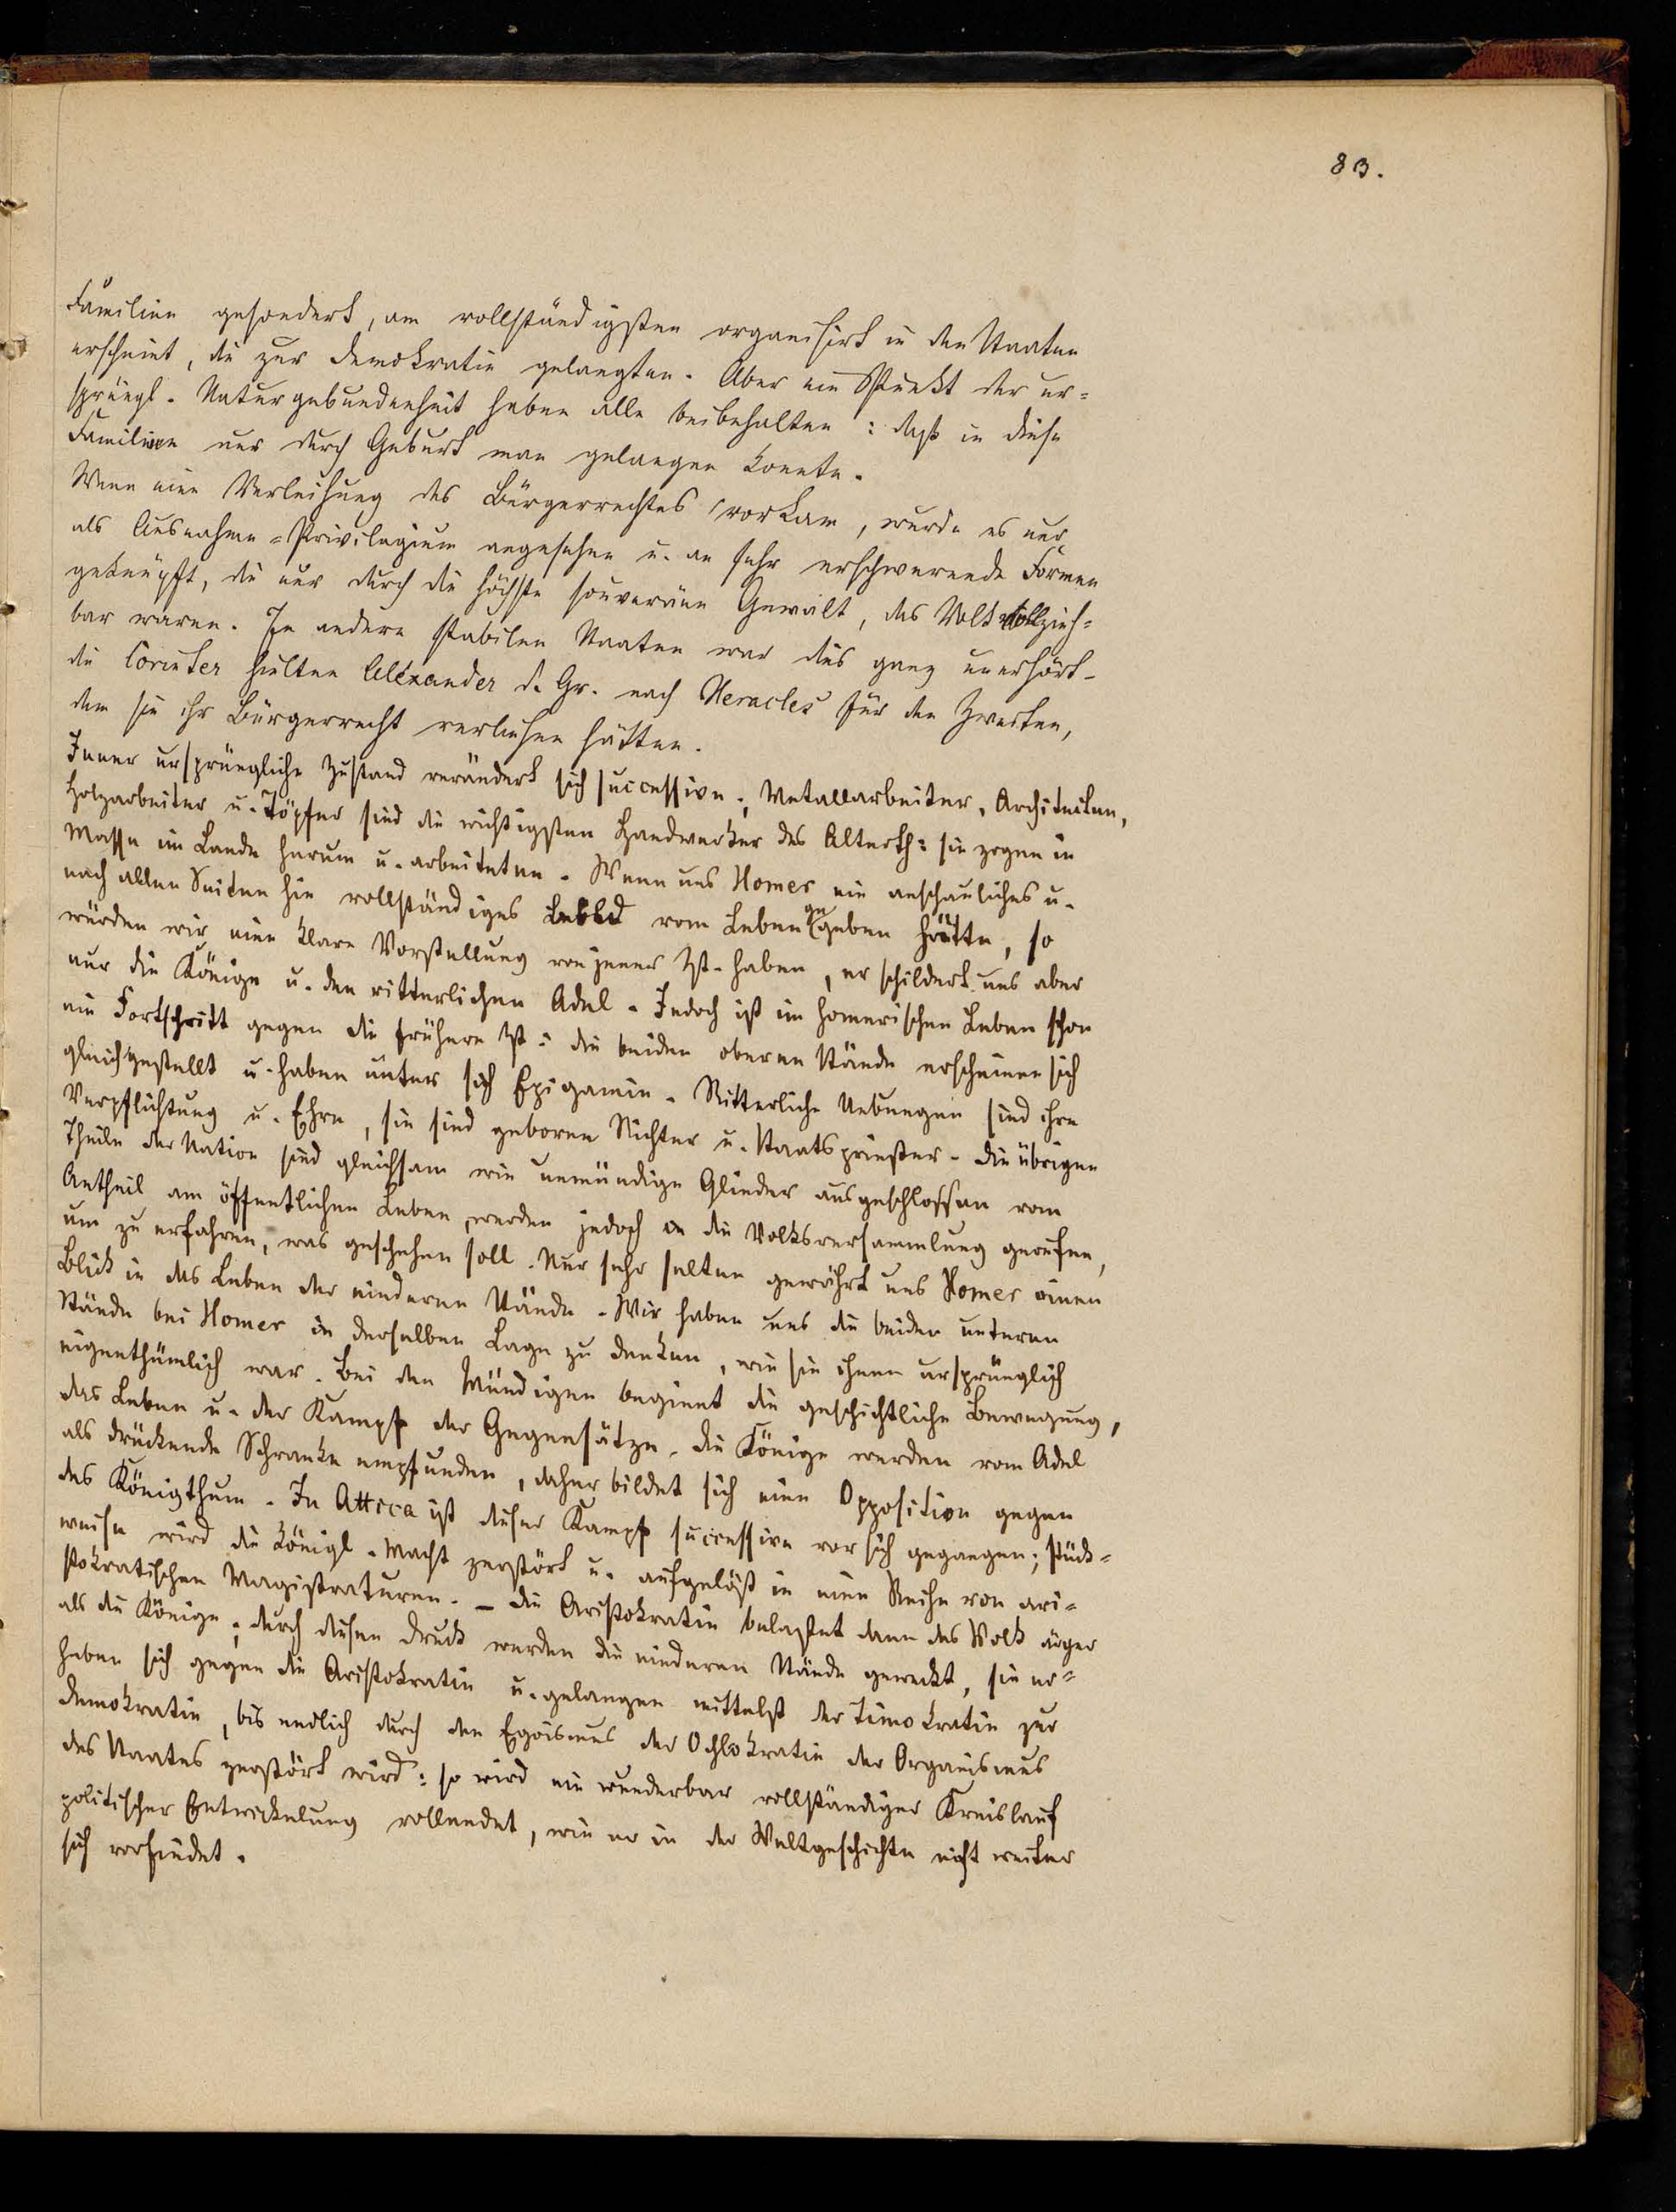 83.
Familien gesondert, am vollständigsten organisirt in den Staaten
erscheint, die zur Demokratie gelangten. Aber ein Punkt der ur=
sprüngl. Naturgebundenheit haben alle beibehalten: daß in diese
Familien nur durch Geburt man gelangen konnte.
Wenn eine Verleihung des Bürgerrechtes vorkam, wurde es nur
als Ausnahme=Privilegium angesehen u. an sehr erschwerende Formen
geknüpft, die nur durch die höchste souveräne Gewalt, des Volks vollzieh=
bar waren. In andern stabilen Staaten war dies ganz unerhört –
die Corinter hielten Alexander d. Gr. nach Heracles für den Zweiten,
dem sie ihr Bürgerrecht verliehen hätten.
Jener ursprüngliche Zustand verändert sich successive; Metallarbeiter, Architecten,
Holzarbeiter u. Töpfer sind die wichtigsten Handwerker des Alterth: sie zogen in
Masse im Lande herum u. arbeiteten. Wenn uns Homer ein anschauliches u.
nach allen Seiten hin vollständiges Bild vom Leben gegeben hätte, so
würden wir eine klare Vorstellung von jener Zt. haben, er schildert uns aber
nur die Könige u. den ritterlichen Adel. Jedoch ist im homerischen Leben schon
ein Fortschritt gegen die frühere Zt: die beiden oberen Stände erscheinen sich
gleichgestellt u. haben unter sich Epigamie. Ritterliche Uebungen sind ihre
Verpflichtung u. Ehre, sie sind geborene Richter u. Staatspriester. Die übrigen
Theile der Nation sind gleichsam wie unmündige Glieder ausgeschlossen vom
Antheil am öffentlichen Leben, werden jedoch in die Volksversammlung gerufen,
um zu erfahren, was geschehen soll. Nur sehr selten gewährt uns Homer einen
Blick in das Leben der niederen Stände. Wir haben uns die beiden unteren
Stände bei Homer in derselben Lage zu denken, wie sie ihnen ursprünglich
eigenthümlich war. Bei den Mündigen beginnt die geschichtliche Bewegung,
das Leben u. der Kampf der Gegensätze. Die Könige werden vom Adel
als drückende Schranke empfunden, daher bildet sich eine Opposition gegen
das Königthum. In Attica ist dieser Kampf successive vor sich gegangen; stück=
weise wird die königl. Macht zerstört u. aufgelöst in eine Reihe von ari=
stokratischen Magistraturen. – Die Aristokratie belastet dann das Volk ärger
als die Könige; durch diesen Druck werden die niederen Stände geweckt, sie er=
heben sich gegen die Aristokratie u. gelangen mittelst der Timokratie zur
Demokratie, bis endlich durch den Egoismus der Ochlokratie der Organismus
des Staates zerstört wird: so wird ein wunderbar vollständiger Kreislauf
politischer Entwickelung vollendet, wie er in der Weltgeschichte nicht weiter
sich vorfindet.